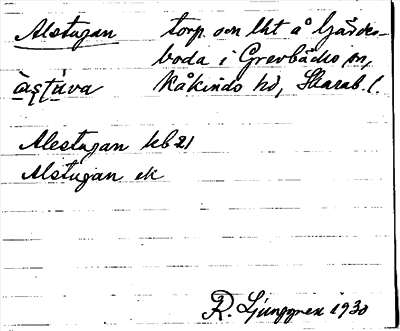 Alstugan torp och lht å Gärdes-
boda i Grevbäcks sn,
àstúva Kåkinds hd, Skarab. l.
Alestugan hb 21
Alstugan ek
R. Ljunggren 1930